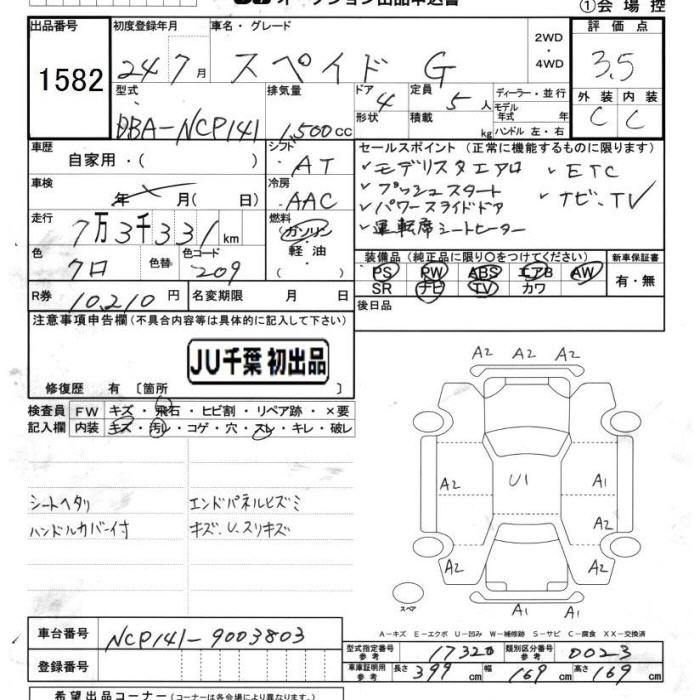 オークション出品申込書
①会場控
出品番号 初度登録年月 車名・グレード 2WD ・ 4WD 評価点
1582 24 7月 スペイド G 3.5
型式 排気量 ドア 4 定員 5人 ディーラー・並行 外装 内装
DBA-NCP141 1,500cc 形状 積載 kg モデル年式 年 ハンドル 左・右 C C
車歴 自家用・( ) シフト AT セールスポイント(正常に機能するものに限ります)
車検 年 月(日) 冷房 AAC
✓モデリスタエアロ ✓ETC
✓プッシュスタート ✓ナビ、TV
✓パワースライドドア
✓運転席シートヒーター
走行 7万3千331km 燃料 ガソリン・軽油
色 クロ 色替 色コード 209
装備品(純正品に限り○をつけてください) 新車保証書
PS PW ABS エアB AW 有・無
SR ナビ TV カワ
R券 10,210円 名変期限 月 日 後日品
注意事項申告欄(不具合内容等は具体的に記入して下さい)
JU千葉 初出品
修復歴 有 [箇所 ]
検査員 FW キズ・飛石・ヒビ割・リペア跡・×要
記入欄 内装 キズ・汚レ・コゲ・穴・スレ・キレ・破レ
シートヘタリ エンドパネルヒズミ
ハンドルカバー付 キズ、U、スリキズ
A2 A2 A2
A2 A1
U1
A2 A2
A1
A2 A2 A2
スペア
A-キズ E-エクボ U-凹み W-補修跡 S-サビ C-腐食 XX-交換済
車台番号 NCP141-9003803
登録番号
型式指定番号 参考 17320 類別区分番号 参考 0023
車庫証明用 参考 長さ 399 cm 幅 169 cm 高さ 169 cm
希望出品コーナー(コーナーは各会場により異なります。)